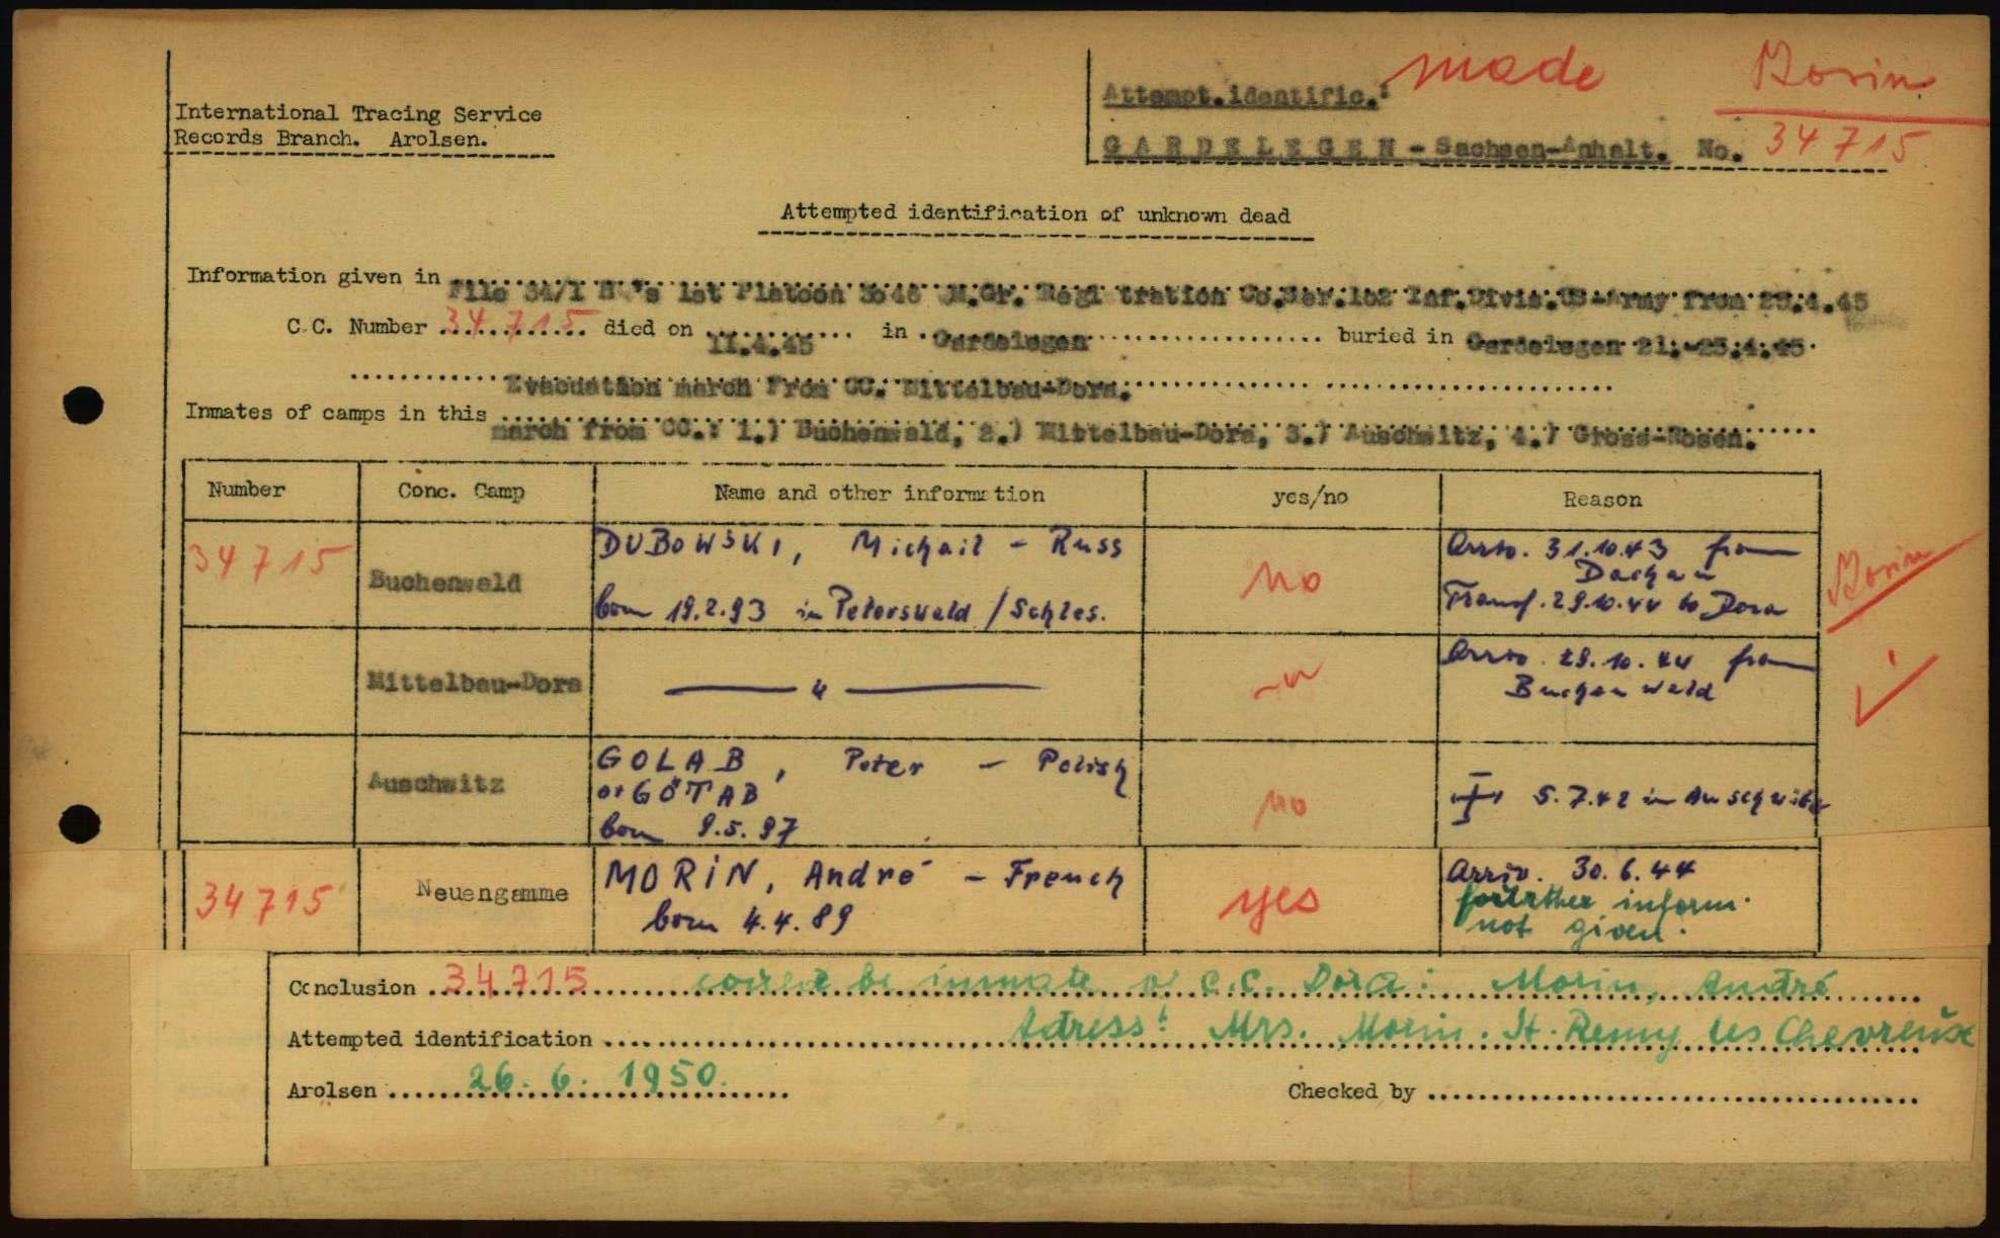 International Tracing Service
Records Branch. Arolsen.
Attempt.identific.: made Morin
GARDELEGEN - Sachsen-Anhalt. No. 34715
Attempted identification of unknown dead
Information given in File 54/I 1st Platoon 3046 Co. Inf.Divis.US-Army from 25.4.45
C.C. Number 34715 died on 11.4.45 in Gardelegen buried in Gardelegen 21.-25.4.45
Evacuation march from CC. Mittelbau-Dora.
Inmates of camps in this march from CC.: 1.) Buchenwald, 2.) Mittelbau-Dora, 3.) Auschwitz, 4.) Gross-Rosen.
Number Conc. Camp Name and other information yes/no Reason
34715 Buchenwald DUBOWSKI, Michail - Russ no Arriv. 31.10.43 from Morin
Dachau
born 19.2.93 in Peterswald/Schles. Transf. 29.10.44 to Dora
Mittelbau-Dora — " — — " Arriv. 29.10.44 from ✓
Buchenwald
Auschwitz GOLAB, Peter - Polish no 5.7.42 in Auschwitz
or GÖTAB
born 9.5.97
34715 Neuengamme MORIN, André - French yes Arriv. 30.6.44
born 4.4.89 inform.
not given.
Conclusion 34715 be inmate C.C. Dora: Morin, André
Attempted identification Adress: Mrs. Morin. St. Remy les Chevreuse
Arolsen 26. 6. 1950. Checked by